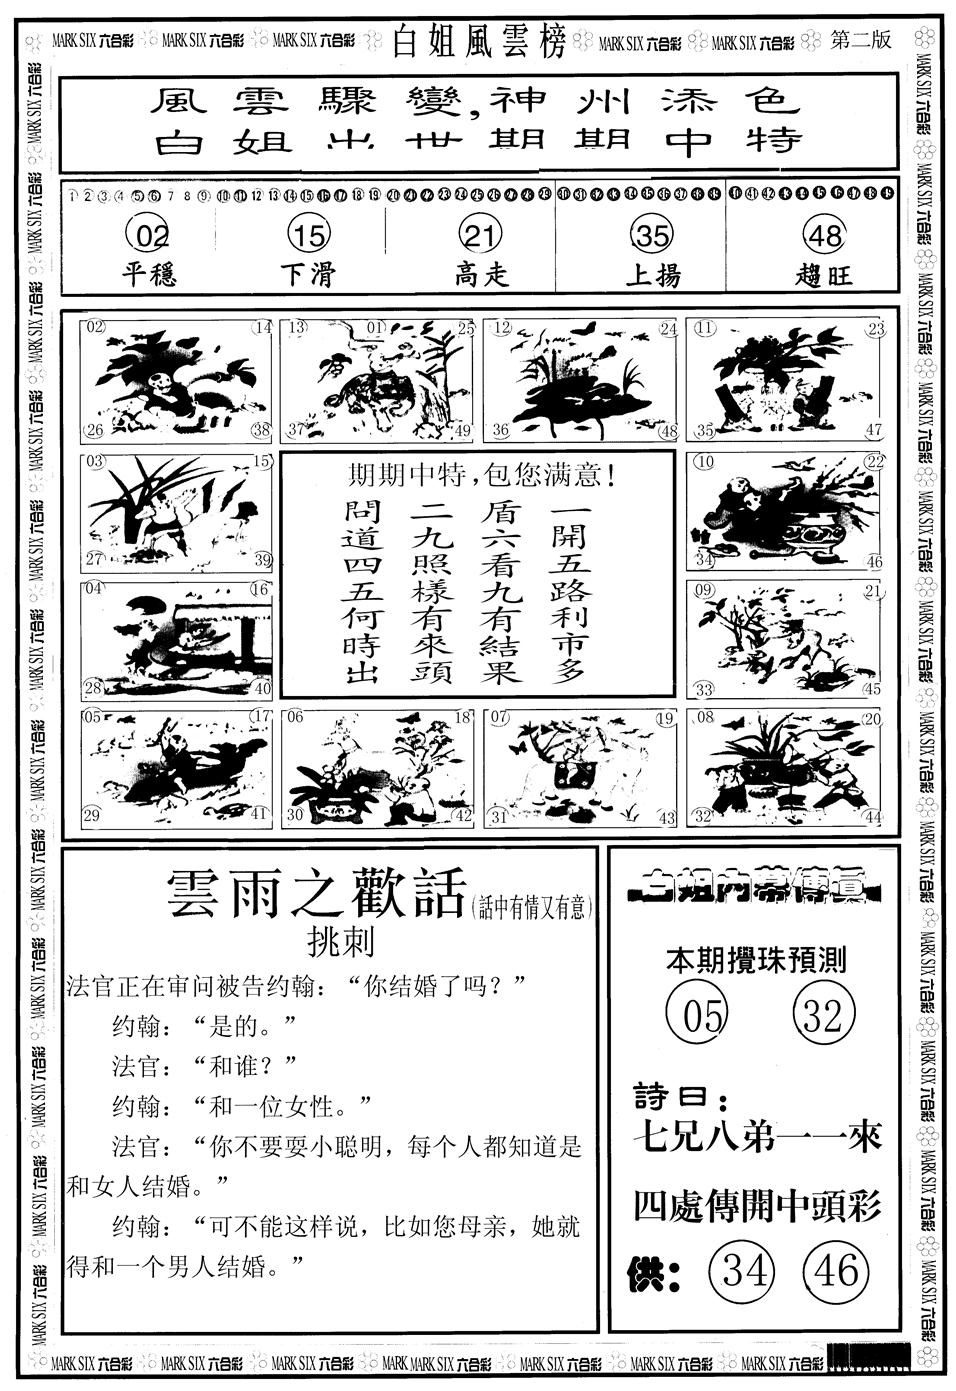 MARK SIX 六合彩 MARK SIX 六合彩 MARK SIX 六合彩 白姐風雲榜 MARK SIX 六合彩 MARK SIX 六合彩 第二版
風雲驟變,神州添色
白姐出世期期中特
1 2 3 4 5 6 7 8 9 10 11 12 13 14 15 16 17 18 19 20 21 22 23 24 25 26 27 28 29 30 31 32 33 34 35 36 37 38 39 40 41 42 43 44 45 46 47 48 49
02 15 21 35 48
平穩 下滑 高走 上揚 趨旺
02 14 13 01 25 12 24 11 23
26 38 37 49 36 48 35 47
03 15 10 22
27 39 34 46
04 16 09 21
28 40 33 45
05 17 06 18 07 19 08 20
29 41 30 42 31 43 32 44
期期中特,包您满意!
一開五路利市多
盾六看九有結果
二九照樣有來頭
問道四五何時出
雲雨之歡話(話中有情又有意)
挑刺
法官正在审问被告约翰：“你结婚了吗？”
约翰：“是的。”
法官：“和谁？”
约翰：“和一位女性。”
法官：“你不要耍小聪明，每个人都知道是
和女人结婚。”
约翰：“可不能这样说，比如您母亲，她就
得和一个男人结婚。”
白姐内幕傳真
本期攪珠預測
05 32
詩曰：
七兄八弟一一來
四處傳開中頭彩
供：34 46
MARK SIX 六合彩 MARK SIX 六合彩 MARK SIX 六合彩 MARK MARK SIX 六合彩 MARK SIX 六合彩 MARK SIX 六合彩 MARK SIX 六合彩